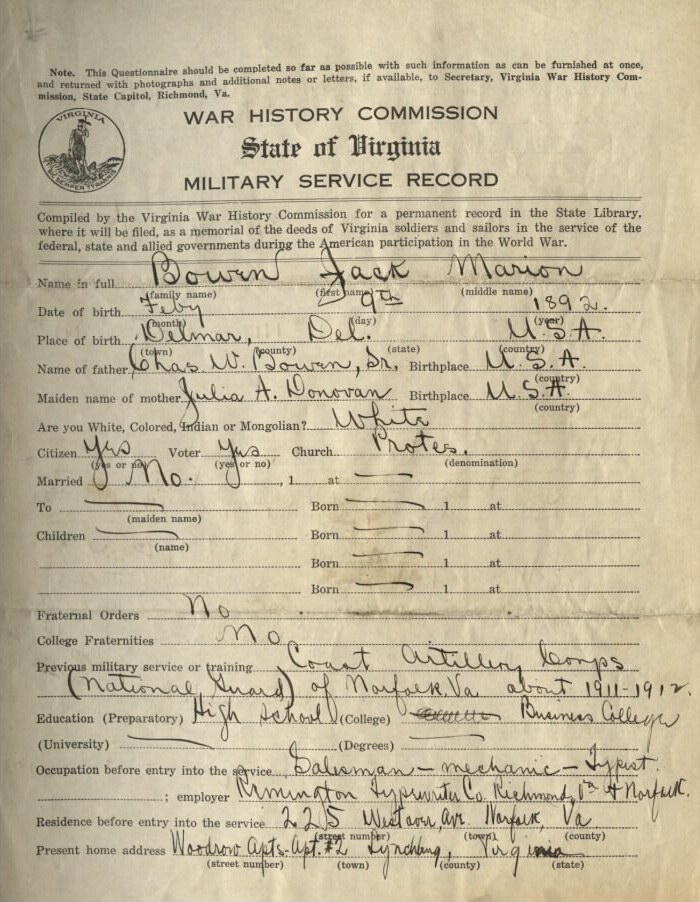 Note. This Questionnaire should be completed so far as possible with such information as can be furnished at once,
and returned with photographs and additional notes or letters, if available, to Secretary, Virginia War History Com-
mission, State Capitol, Richmond, Va.
VIRGINIA
SIC SEMPER TYRANNIS
WAR HISTORY COMMISSION
State of Virginia
MILITARY SERVICE RECORD
Compiled by the Virginia War History Commission for a permanent record in the State Library,
where it will be filed, as a memorial of the deeds of Virginia soldiers and sailors in the service of the
federal, state and allied governments during the American participation in the World War.
Name in full Bowen Jack Marion
(family name) (first name) (middle name)
Date of birth Feby 9th 1892.
(month) (day) (year)
Place of birth Delmar, Del. U.S.A.
(town) (county) (state) (country)
Name of father Chas W. Bowen, Sr. Birthplace U.S.A.
(country)
Maiden name of mother Julia A. Donovan Birthplace U.S.A.
(country)
Are you White, Colored, Indian or Mongolian? White
Citizen Yes Voter Yes Church Protes.
(yes or no) (yes or no) (denomination)
Married No. , 1 at
To Born 1 at
(maiden name)
Children Born 1 at
(name)
Born 1 at
Born 1 at
Fraternal Orders No
College Fraternities No
Previous military service or training Coast Artillery Corps
(National Guard) of Norfolk Va about 1911-1912.
Education (Preparatory) High School (College) Business College
(University) (Degrees)
Occupation before entry into the service Salesman - mechanic - Typist.
; employer Remington Typewriter Co. Richmond, Va & Norfolk.
Residence before entry into the service 225 Westover Ave. Norfolk, Va.
(street number) (town) (county)
Present home address Woodrow Apts. Apt. #2 Lynchburg, Virginia
(street number) (town) (county) (state)